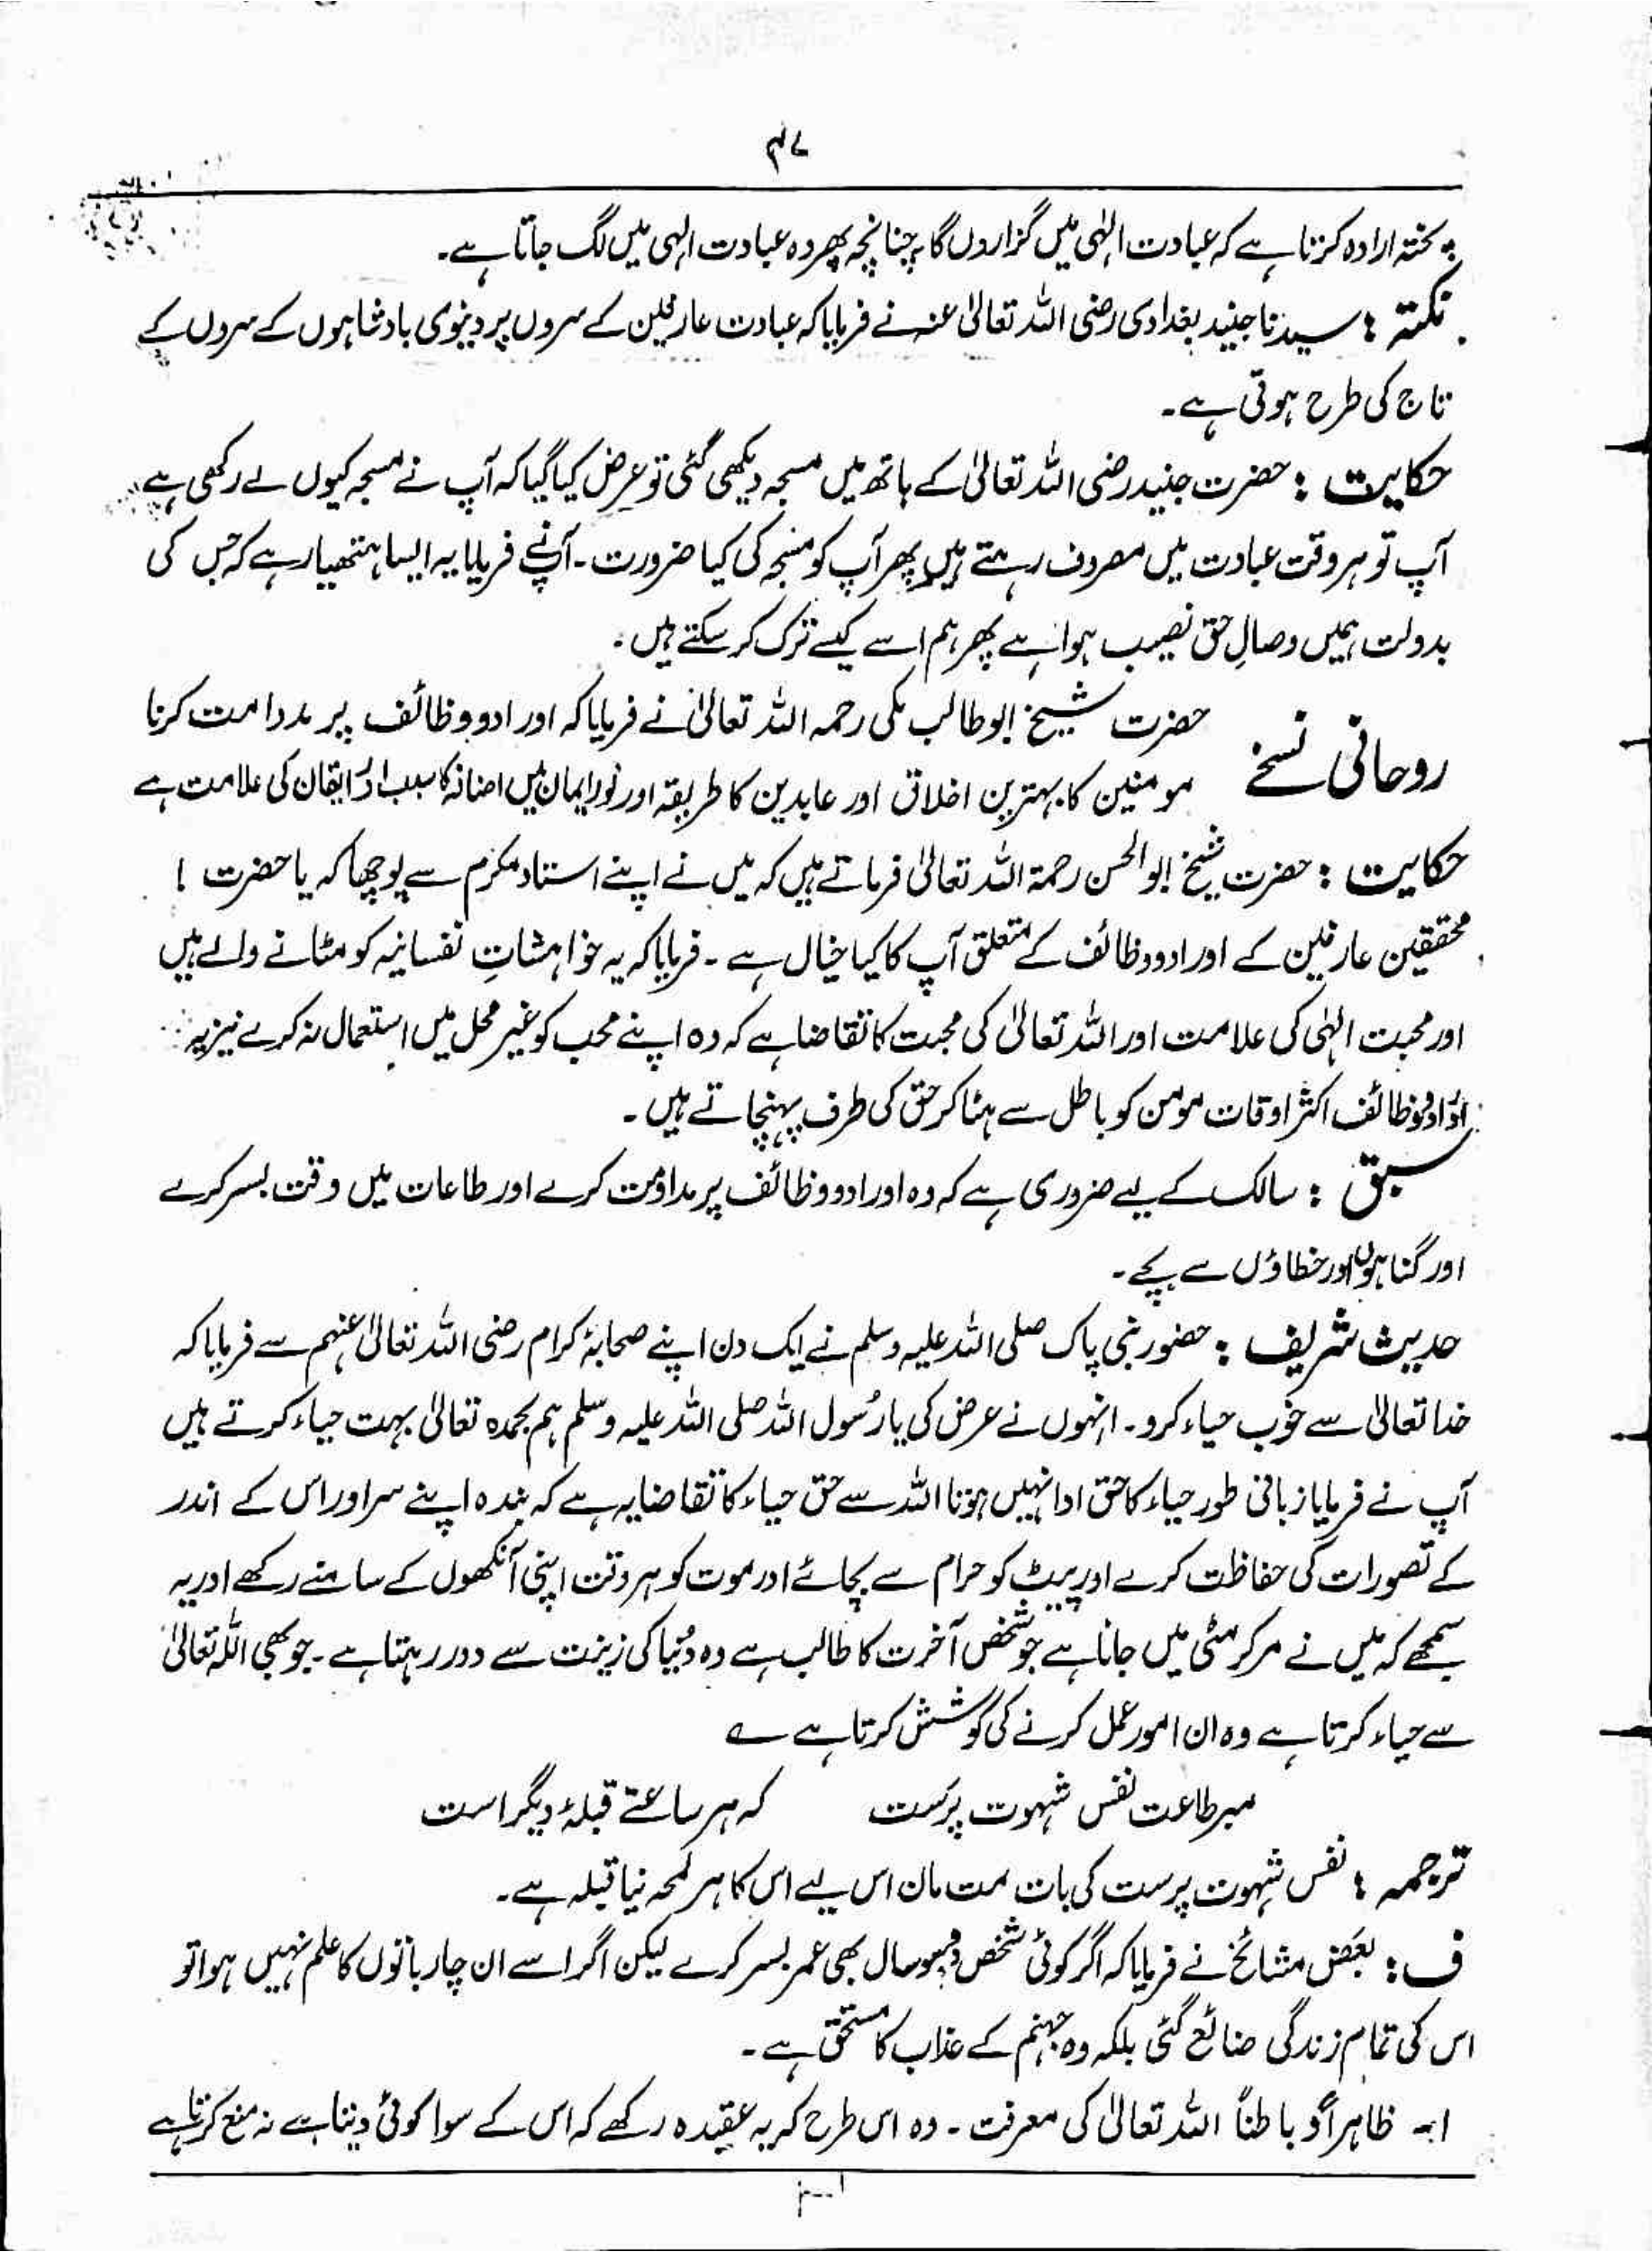 ۴۷
پختہ ارادہ کرتا ہے کہ عبادت الہٰی میں گزاروں گا چنانچہ پھر وہ عبادت الہی میں لگ جاتا ہے۔
نکتہ : سیدنا جنید بغدادی رضی اللہ تعالیٰ عنہ نے فرمایا کہ عبادت عارفین کے سروں پر دینوی بادشاہوں کے سروں کے
تاج کی طرح ہوتی ہے۔
حکایت : حضرت جنید رضی اللہ تعالیٰ کے ہاتھ میں مسبحہ دیکھی گئی تو عرض کیا گیا کہ آپ نے مسبحہ کیوں لے رکھی ہے
آپ تو ہر وقت عبادت میں مصروف رہتے ہیں پھر آپ کو مسبحہ کی کیا ضرورت ۔ آپنے فرمایا یہ ایسا ہتھیار ہے کہ جس کی
بدولت ہمیں وصالِ حق نصیب ہوا ہے پھر ہم اسے کیسے ترک کر سکتے ہیں ۔
روحانی نسخے
حضرت شیخ ابوطالب مکی رحمہ اللہ تعالیٰ نے فرمایا کہ اورادو وظائف پر مداومت کرنا
مومنین کا بہترین اخلاق اور عابدین کا طریقہ اور نورِ ایمان میں اضافہ کا سبب اور ایقان کی علامت ہے
حکایت : حضرت شیخ ابوالحسن رحمۃ اللہ تعالیٰ فرماتے ہیں کہ میں نے اپنے استاد مکرم سے پوچھا کہ یا حضرت !
محققین عارفین کے اورادو وظائف کے متعلق آپ کا کیا خیال ہے ۔ فرمایا کہ یہ خواہشاتِ نفسانیہ کو مٹانے والے ہیں
اور محبت الہٰی کی علامت اور اللہ تعالیٰ کی محبت کا تقاضا ہے کہ وہ اپنے محب کو غیر محل میں استعمال نہ کرے نیز یہ
اورادو وظائف اکثر اوقات مومن کو باطل سے ہٹا کر حق کی طرف پہنچاتے ہیں ۔
سبق : سالک کے لیے ضروری ہے کہ وہ اورادو وظائف پر مداومت کرے اور طاعات میں وقت بسر کرے
اور گناہوں اور خطاؤں سے بچے ۔
حدیث شریف : حضور نبی پاک صلی اللہ علیہ وسلم نے ایک دن اپنے صحابۂ کرام رضی اللہ تعالیٰ عنہم سے فرمایا کہ
خدا تعالیٰ سے خوب حیاء کرو ۔ انہوں نے عرض کی یا رسُول اللہ صلی اللہ علیہ وسلم ہم بحمدہ تعالیٰ بہت حیاء کرتے ہیں
آپ نے فرمایا زبانی طور حیاء کا حق ادا نہیں ہوتا اللہ سے حق حیاء کا تقاضا یہ ہے کہ بندہ اپنے سر اور اس کے اندر
کے تصورات کی حفاظت کرے اور پیٹ کو حرام سے بچائے اور موت کو ہر وقت اپنی آنکھوں کے سامنے رکھے اور یہ
سمجھے کہ میں نے مر کر مٹی میں جانا ہے جو شخص آخرت کا طالب ہے وہ دُنیا کی زینت سے دور رہتا ہے ۔ جو بھی اللہ تعالیٰ
سے حیاء کرتا ہے وہ ان امور عمل کرنے کی کوشش کرتا ہے ؎
مبر طاعت نفس شہوت پرَست کہ ہر ساعتے قبلۂ دیگر است
ترجمہ : نفس شہوت پرست کی بات مت مان اس لیے اس کا ہر لمحہ نیا قبلہ ہے ۔
ف : بعَض مشائخ نے فرمایا کہ اگر کوئی شخص سال بھی عمر بسر کرے لیکن اگر اسے ان چار باتوں کا علم نہیں ہوا تو
اس کی تمام زندگی ضائع گئی بلکہ وہ جہنم کے عذاب کا مستحق ہے ۔
۱۔ ظاہراً و باطناً اللہ تعالیٰ کی معرفت ۔ وہ اس طرح کہ یہ عقیدہ رکھے کہ اس کے سوا کوئی دیتا ہے نہ منع کرتا ہے